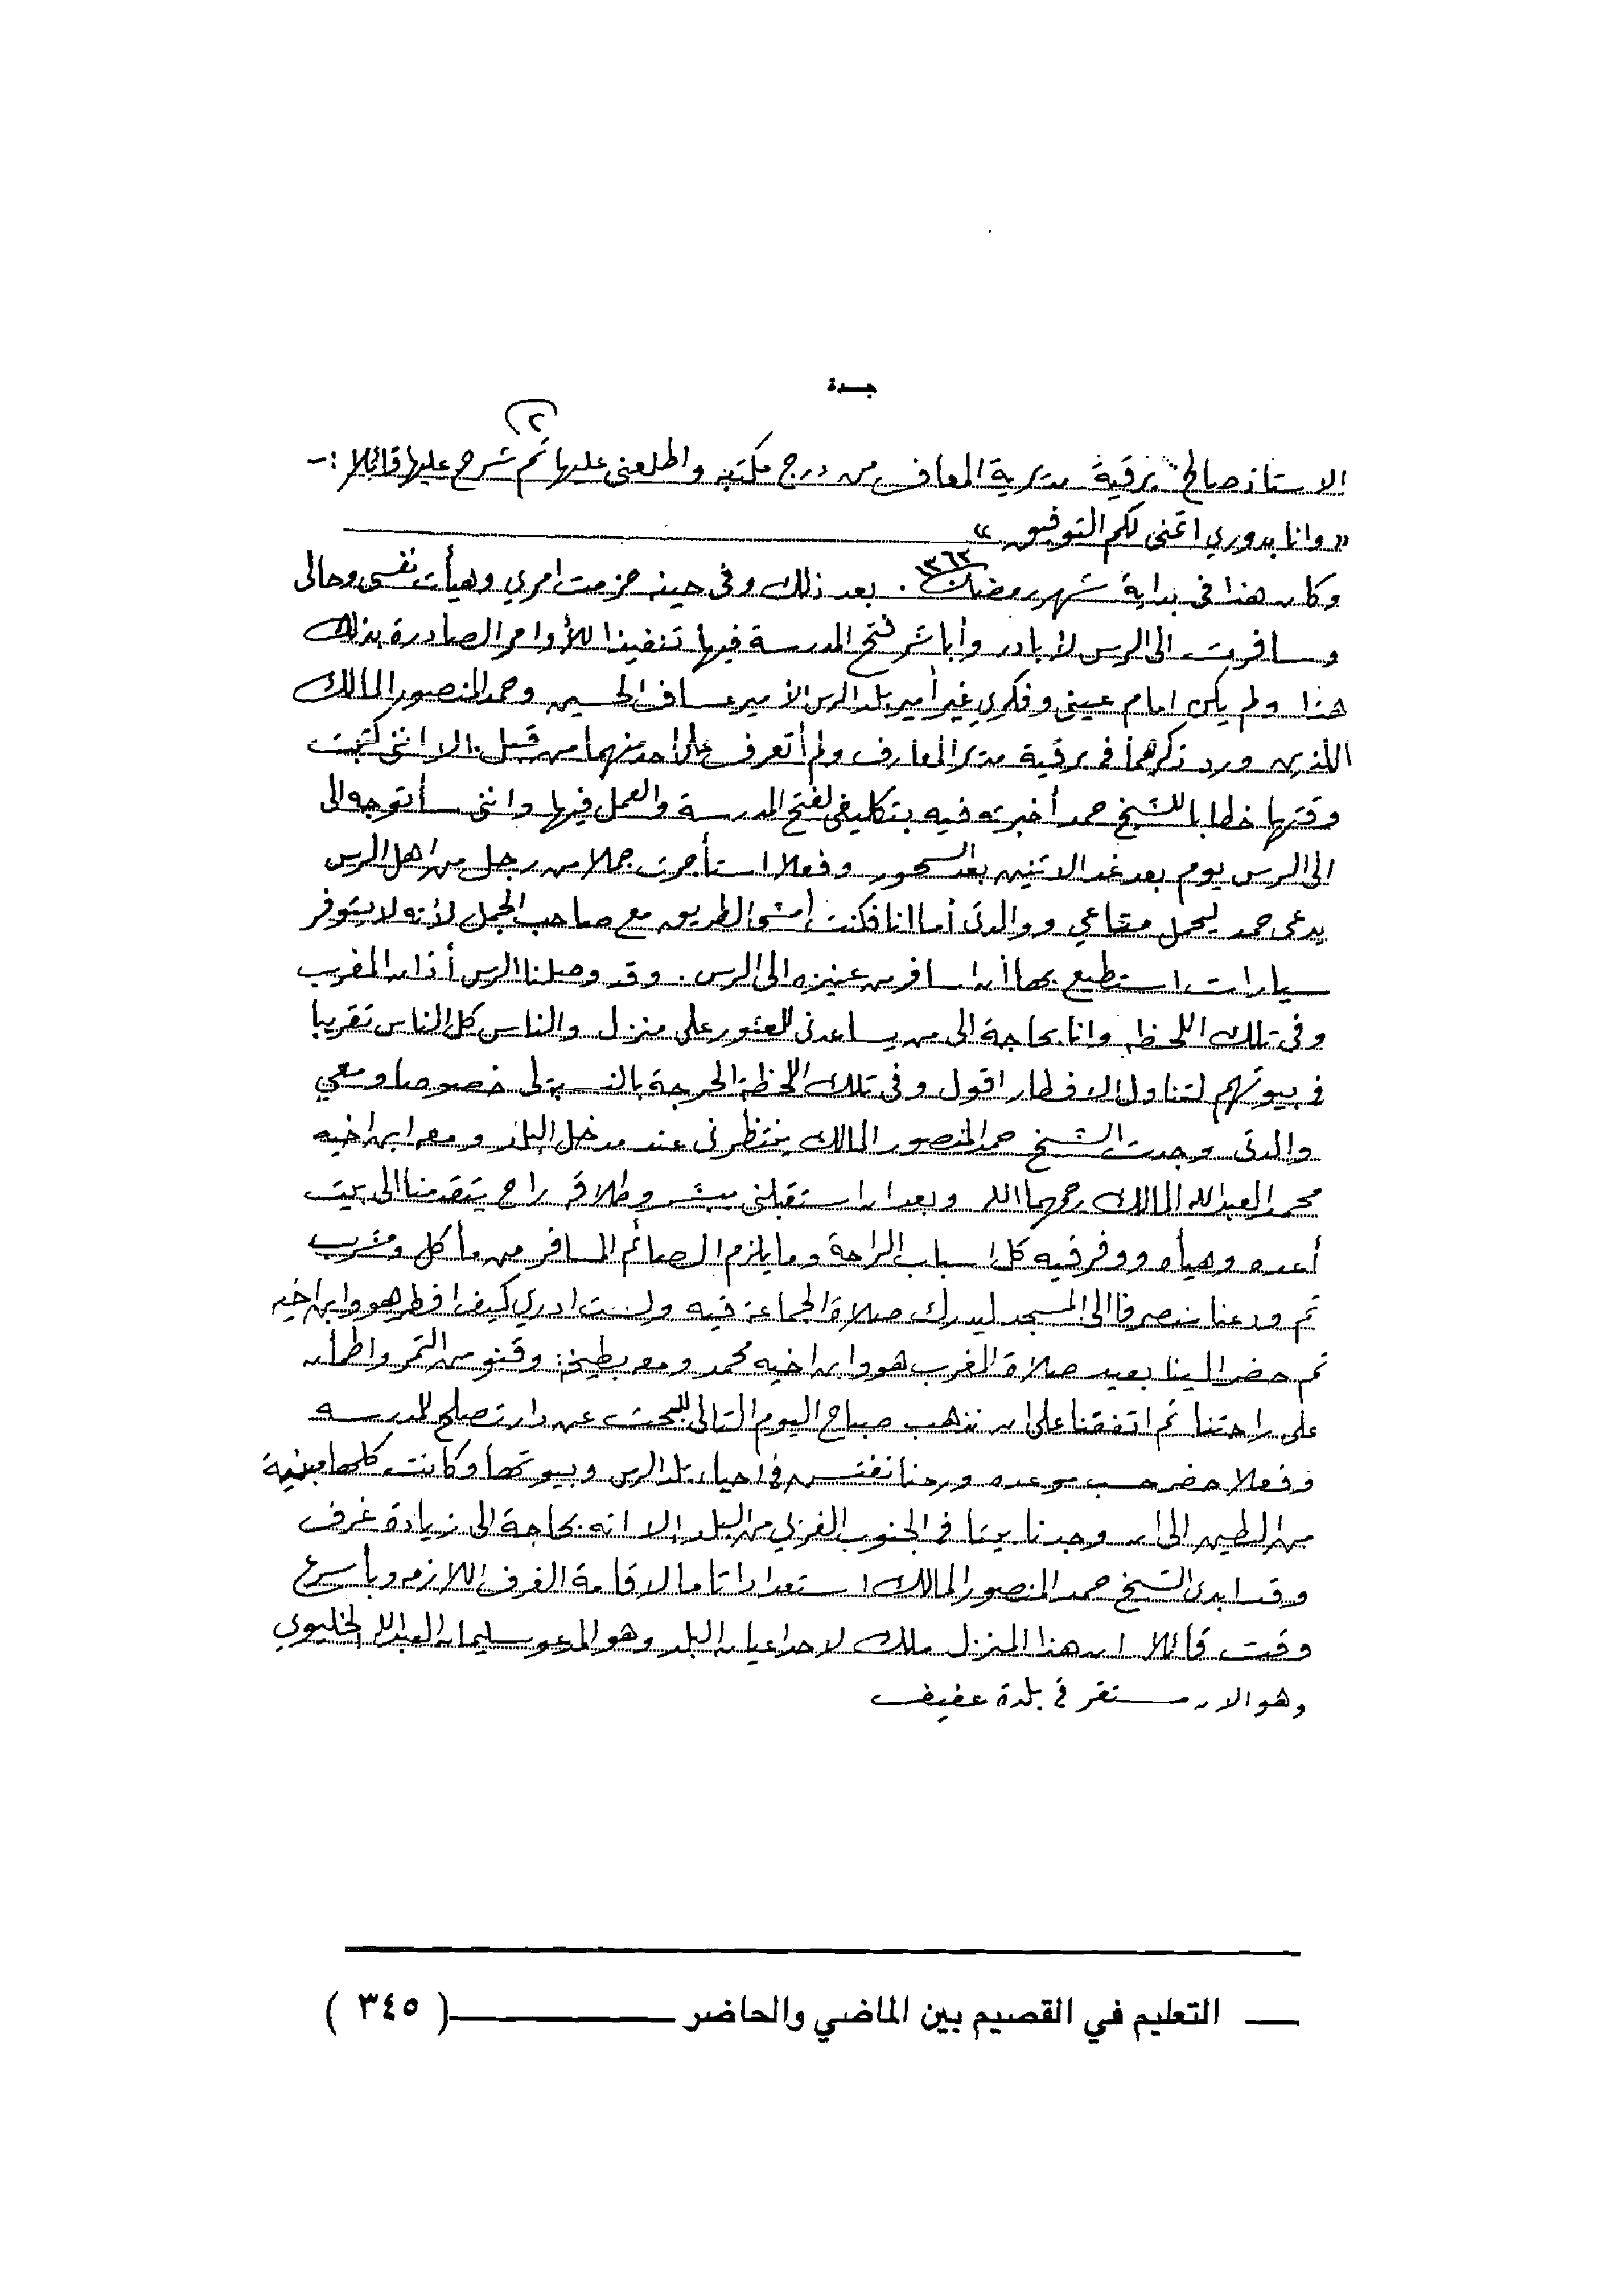 جـدة
٢
الاستاذ صالح برقية مديرية المعارف من درج مكتبه واطلعني عليها ثم شرح عليها قائلا :-
«وانا بدوري اتمنى لكم التوفيق»
وكان هذا في بداية شهر رمضان ١٣٦٣ . بعد ذلك وفي حينه حزمت امري وهيأت نفسي وحالي
وسافرت الى الرس لأبادر وأباشر فتح المدرسة فيها تنفيذا للأوامر الصادرة بذلك
هذا ولم يكن امام عيني وفكري غير أمير بلد الرس الأمير عساف الحسين وحمد المنصور المالك
اللذين ورد ذكرهما في برقية مدير المعارف ولم أتعرف على احد منهما من قبل الا انني كتبت
وقتها خطابا للشيخ حمد أخبرته فيه بتكليفي لفتح المدرسة والعمل فيها وانني سأتوجه الى
الى الرس يوم بعد غد الاثنين بعد السحور وفعلا استأجرت جملا من رجل من اهل الرس
يدعى حمد ليحمل متاعي ووالدتي أما انا فكنت أمشي الطريق مع صاحب الجمل لأنه لا يتوفر
سيارات استطيع بها أن اسافر من عنيزه الى الرس . وقد وصلنا الرس أذان المغرب
وفي تلك اللحظه وانا بحاجة الى من يساعدني للعثور على منزل والناس كل الناس تقريبا
في بيوتهم لتناول الافطار اقول وفي تلك اللحظة الحرجة بالنسبة لي خصوصا ومعي
والدتي وجدت الشيخ حمد المنصور المالك ينتظرني عند مدخل البلد ومعه ابن اخيه
محمد العبدالله المالك رحمهما الله وبعد ان استقبلني ببشر وطلاقه راح يتقدمنا الى بيت
أعده وهيأه ووفر فيه كل اسباب الراحة وما يلزم الصائم المسافر من مأكل ومشرب
ثم ودعنا منصرفا الى المسجد ليدرك صلاة الجماعة فيه ولست ادري كيف افطر هو وابن اخيه
ثم حضر الينا بعيد صلاة المغرب هو وابن اخيه محمد ومعه بطيخة وقنو من التمر واطمأن
على راحتنا ثم اتفقنا على ان نذهب صباح اليوم التالي للبحث عن دار تصلح للمدرسه
وفعلا حضر حسب موعده ورحنا نفتش في احياء بلد الرس وبيوتها وكانت كلها مبنية
من الطين الى ان وجدنا بيتا في الجنوب الغربي من البلد الا انه بحاجة الى زيادة غرف
وقد ابدى الشيخ حمد المنصور المالك استعدادا تاما لاقامة الغرف اللازمه وبأسرع
وقت قائلا ان هذا المنزل ملك لاحد اعيان البلد وهو المدعو سليمان العبدالله الخليوي
وهو الان مستقر في بلدة عفيف
التعليم في القصيم بين الماضي والحاضر ( ٣٤٥ )